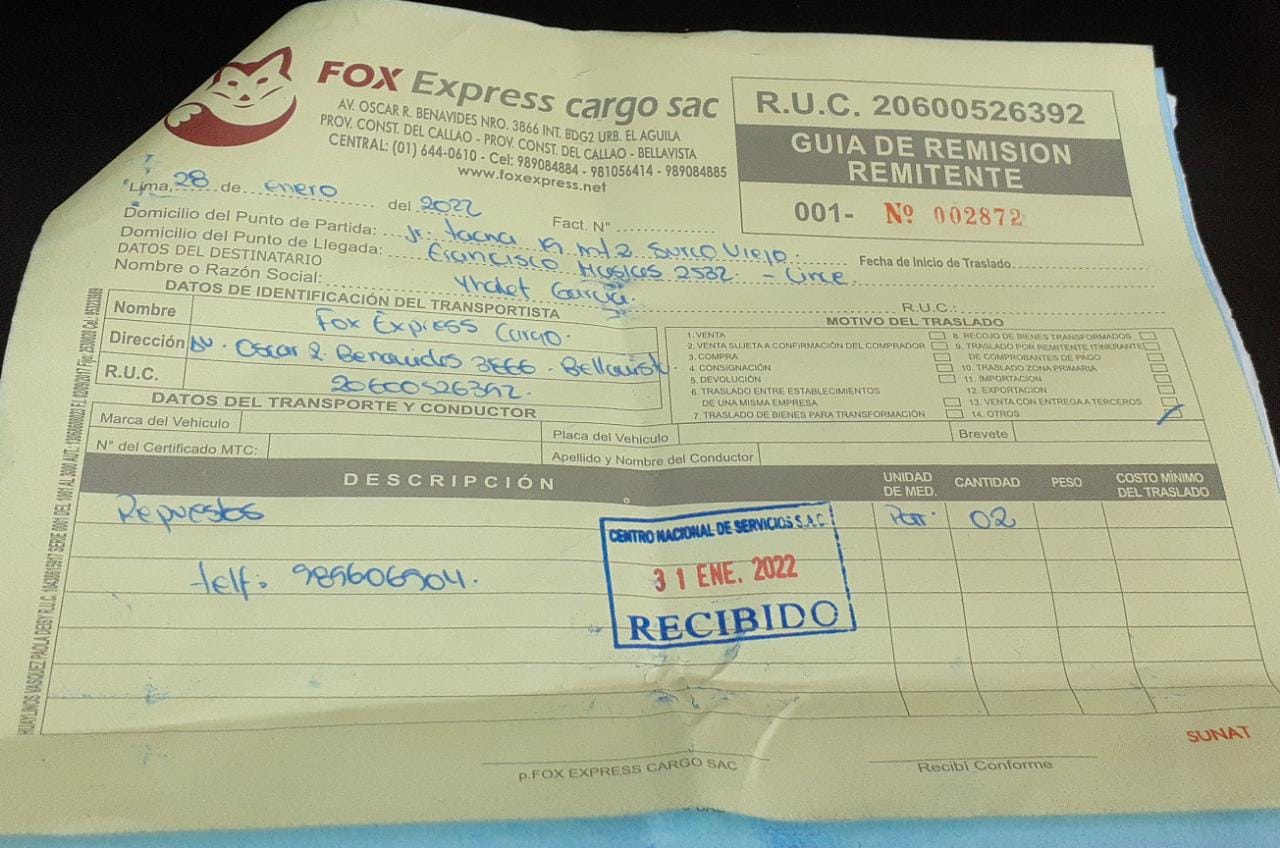 FOX Express cargo sac
AV. OSCAR R. BENAVIDES NRO. 3866 INT. BDG2 URB. EL AGUILA
PROV. CONST. DEL CALLAO - PROV. CONST. DEL CALLAO - BELLAVISTA
CENTRAL: (01) 644-0610 - Cel: 989084884 - 981056414 - 989084885
www.foxexpress.net
R.U.C. 20600526392
GUIA DE REMISION
REMITENTE
001- Nº 002872
Lima, 28 de enero del 2022
Fact. N°
Domicilio del Punto de Partida: Jr. Tacna 19 mt2 Surco Viejo.
Domicilio del Punto de Llegada: Francisco Masias 2532 - Lince
Fecha de Inicio de Traslado
DATOS DEL DESTINATARIO
Nombre o Razón Social: Yhalet Garcia.
R.U.C.:
DATOS DE IDENTIFICACIÓN DEL TRANSPORTISTA
Nombre Fox Express Cargo.
Dirección Av. Oscar R. Benavides 3866 - Bellavista
R.U.C. 20600526392.
MOTIVO DEL TRASLADO
1. VENTA
2. VENTA SUJETA A CONFIRMACIÓN DEL COMPRADOR
3. COMPRA
4. CONSIGNACIÓN
5. DEVOLUCIÓN
6. TRASLADO ENTRE ESTABLECIMIENTOS
DE UNA MISMA EMPRESA
7. TRASLADO DE BIENES PARA TRANSFORMACIÓN
8. RECOJO DE BIENES TRANSFORMADOS
9. TRASLADO POR REMITENTE ITINERANTE
DE COMPROBANTES DE PAGO
10. TRASLADO ZONA PRIMARIA
11. IMPORTACION
12. EXPORTACION
13. VENTA CON ENTREGA A TERCEROS
14. OTROS
DATOS DEL TRANSPORTE Y CONDUCTOR
Marca del Vehiculo
Placa del Vehiculo
Brevete
N° del Certificado MTC:
Apellido y Nombre del Conductor
DESCRIPCIÓN
UNIDAD
DE MED.
CANTIDAD
PESO
COSTO MÍNIMO
DEL TRASLADO
Repuestos
02
telf: 989606904.
CENTRO NACIONAL DE SERVICIOS S.A.C.
31 ENE. 2022
RECIBIDO
SUNAT
p.FOX EXPRESS CARGO SAC
Recibí Conforme